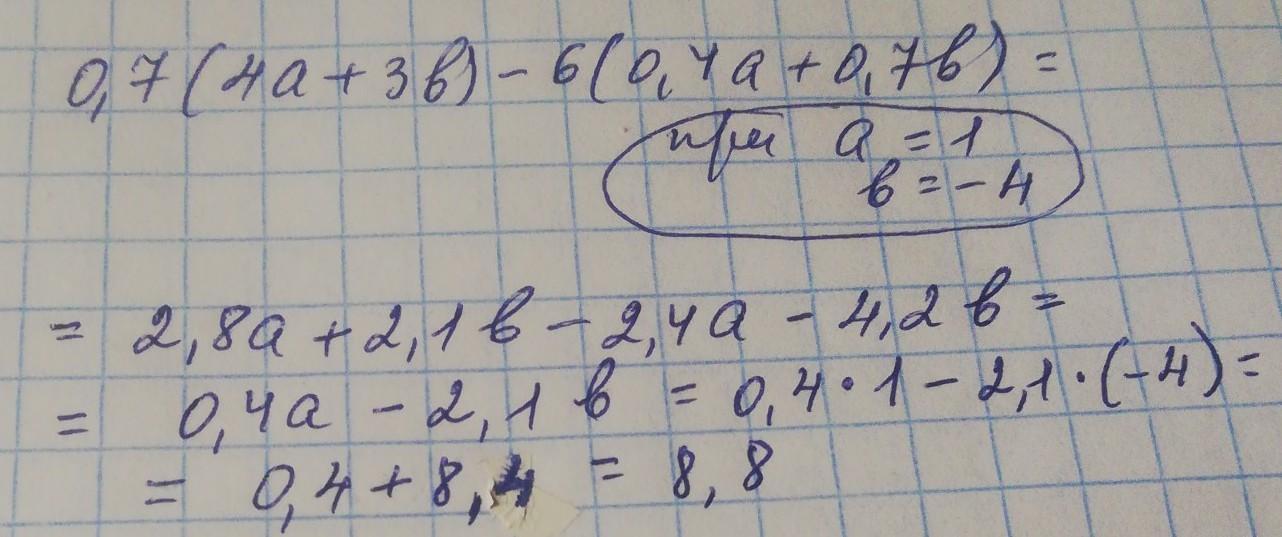 0,7(4а+3в)-6(0,4а+0,7в)=
при а=1
в=-4
= 2,8а+2,1в-2,4а-4,2в=
= 0,4а-2,1в=0,4·1-2,1·(-4)=
= 0,4+8,4=8,8